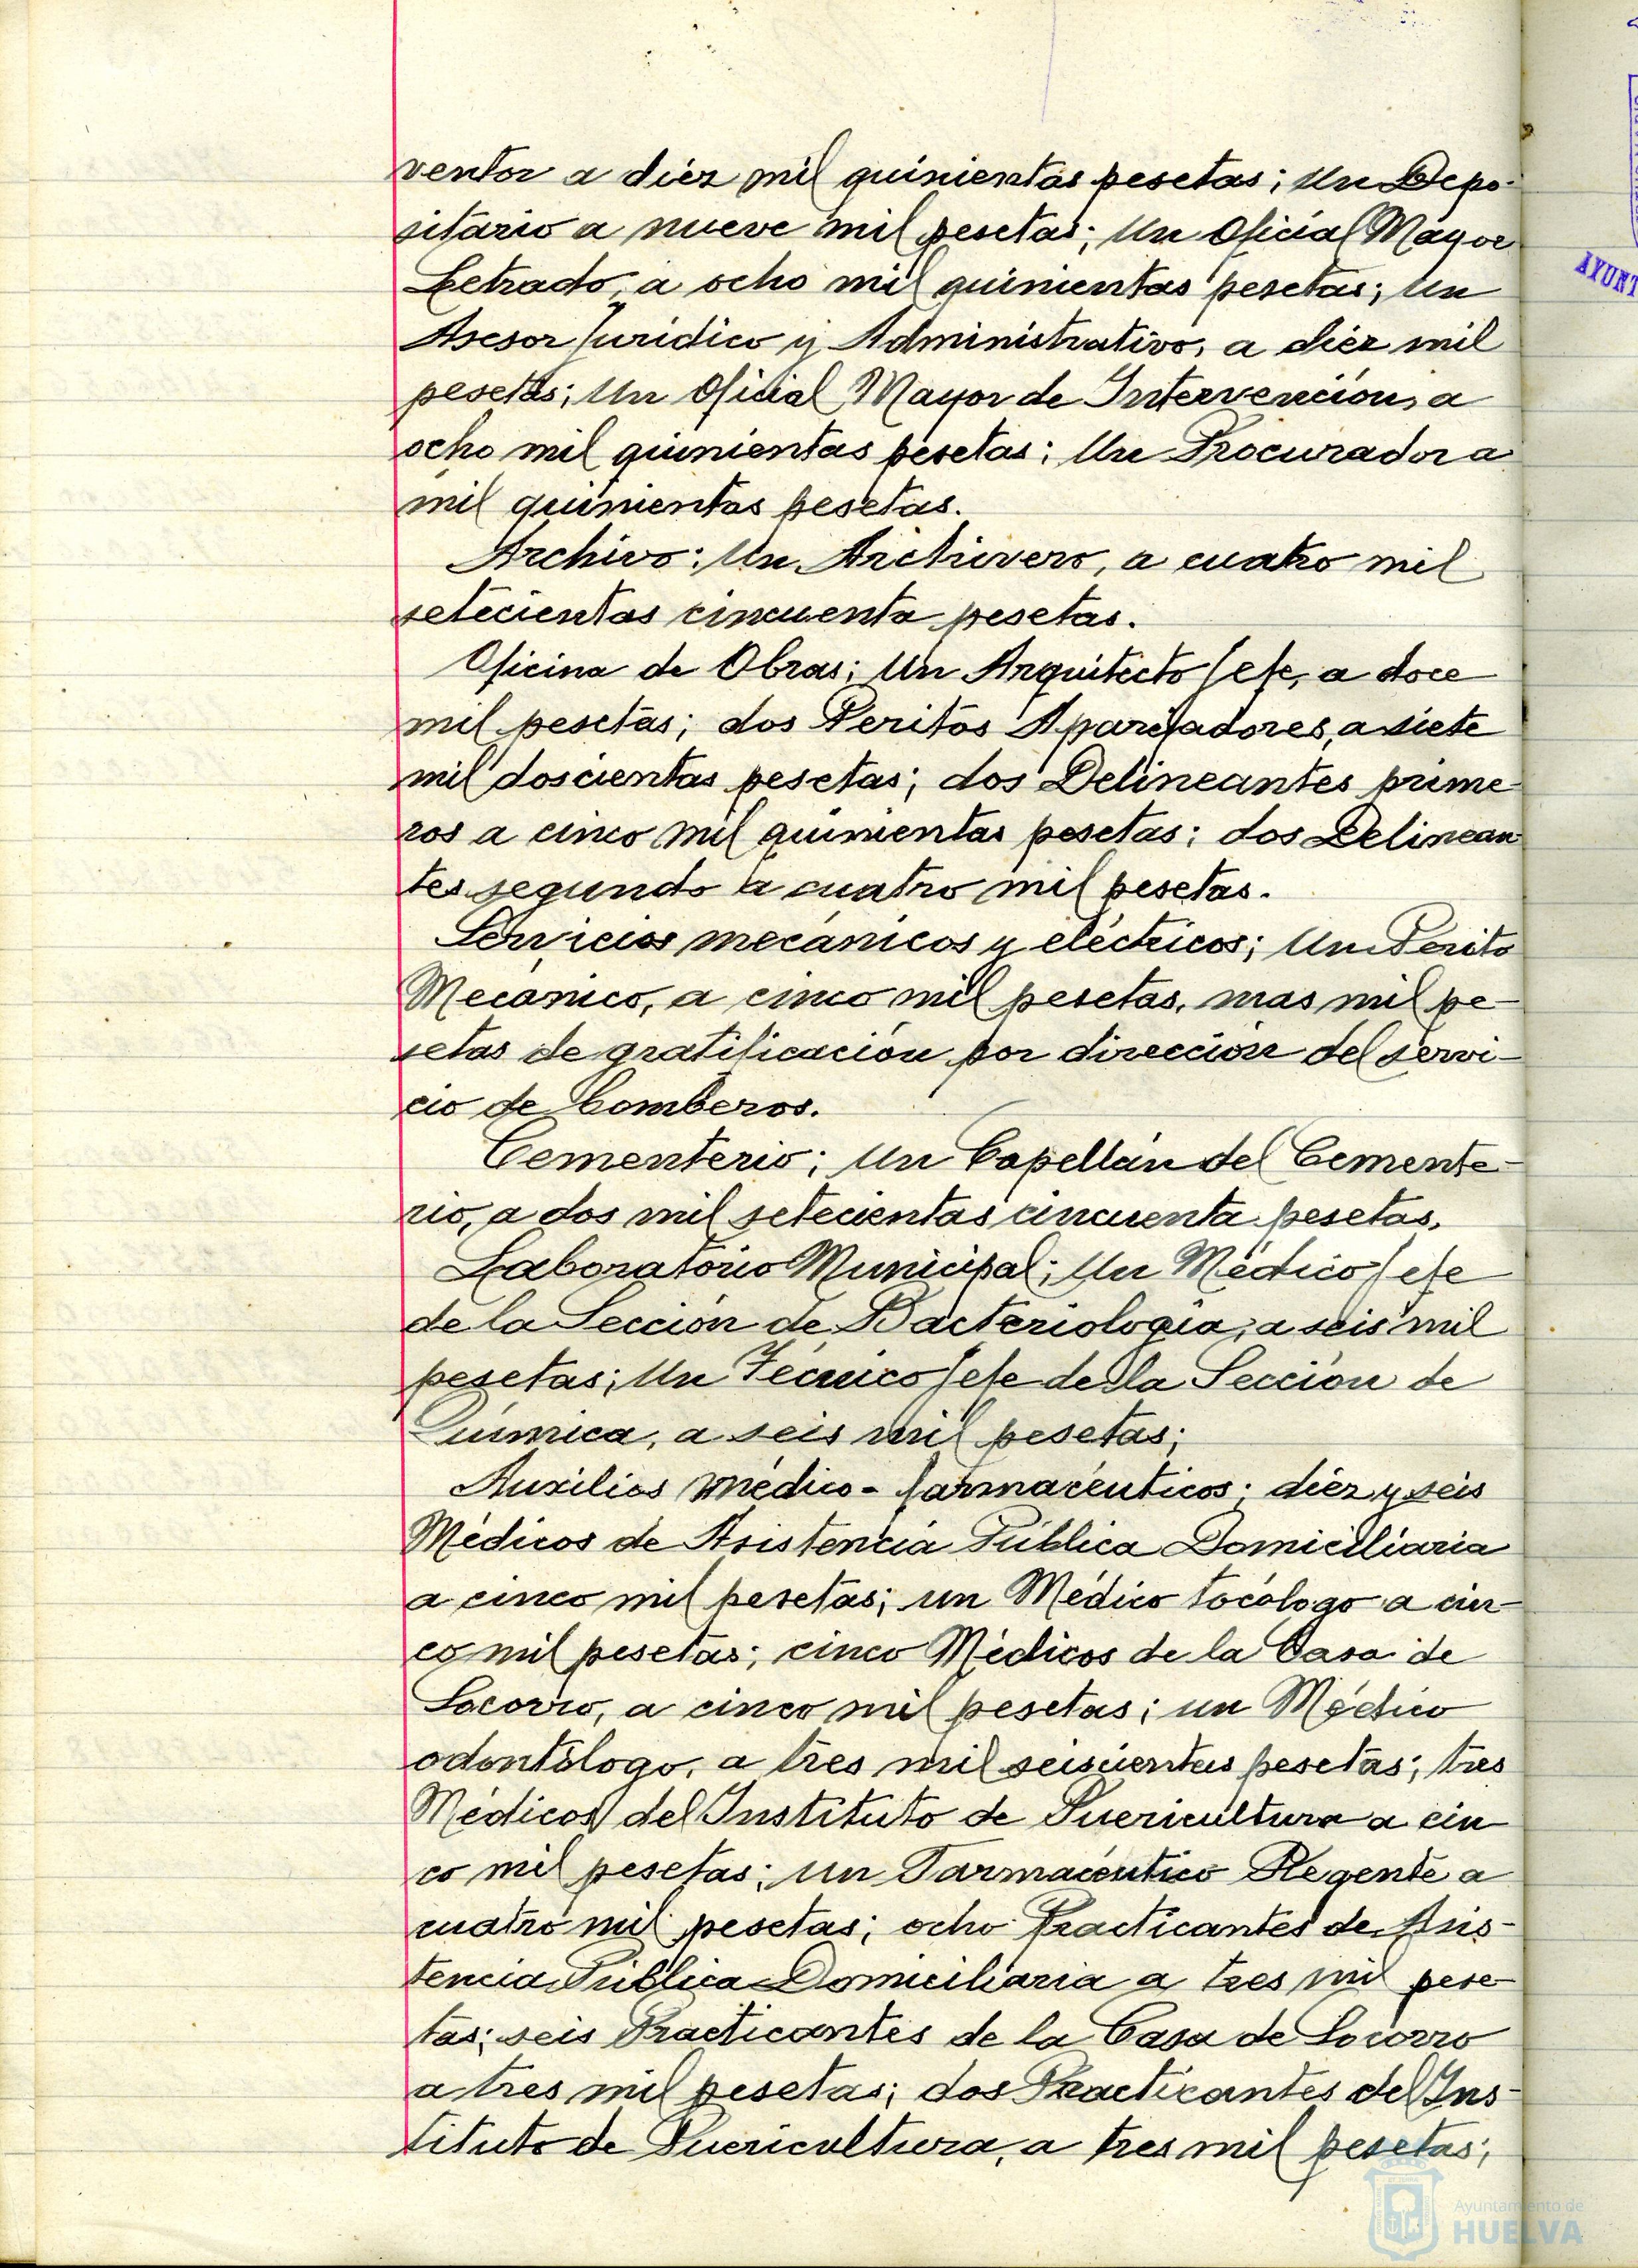 ventor a diéz mil quinientas pesetas; Un Depo-
sitario a nueve mil pesetas; Un Oficial Mayor
Letrado, a ocho mil quinientas pesetas; Un
Asesor Jurídico y Administrativo, a diéz mil
pesetas; Un Oficial Mayor de Intervención, a
ocho mil quinientas pesetas; Un Procurador a
mil quinientas pesetas.
Archivo: Un Archivero, a cuatro mil
setecientas cincuenta pesetas.
Oficina de Obras; Un Arquitecto Jefe, a doce
mil pesetas; dos Peritos Aparejadores, a siete
mil doscientas pesetas; dos Delineantes prime-
ros a cinco mil quinientas pesetas; dos Delinean
tes segundo a cuatro mil pesetas.
Servicios mecánicos y eléctricos; Un Perito
Mecánico, a cinco mil pesetas, mas mil pe-
setas de gratificación por dirección del servi-
cio de bomberos.
Cementerio; Un Capellán del Cemente-
rio, a dos mil setecientas cincuenta pesetas.
Laboratorio Municipal; Un Médico Jefe
de la Sección de Bacteriología, a seis mil
pesetas; Un Técnico Jefe de la Sección de
Química, a seis mil pesetas;
Auxilios médico-farmacéuticos; diéz y seis
Médicos de Asistencia Pública Domiciliaria
a cinco mil pesetas; un Médico tocólogo a cin-
co mil pesetas; cinco Médicos de la Casa de
Socorro, a cinco mil pesetas; un Médico
odontólogo, a tres mil seiscientas pesetas; tres
Médicos del Instituto de Puericultura a cin
co mil pesetas; un Farmacéutico Regente a
cuatro mil pesetas; ocho Practicantes de Asis-
tencia Pública Domiciliaria a tres mil pese-
tas; seis Practicantes de la Casa de Socorro
a tres mil pesetas; dos Practicantes del Ins-
tituto de Puericultura, a tres mil pesetas;
AYUNT
Ayuntamiento de
HUELVA